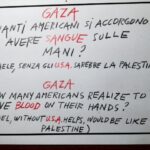 GAZA
QUANTI AMERICANI SI ACCORGONO
AVERE SANGUE SULLE
MANI?
SENZA GLI U.S.A. SAREBBE LA PALESTINA
GAZA
HOW MANY AMERICANS REALIZE TO
BLOOD ON THEIR HANDS?
WITHOUT U.S.A. HELPS, WOULD BE LIKE
PALESTINE)